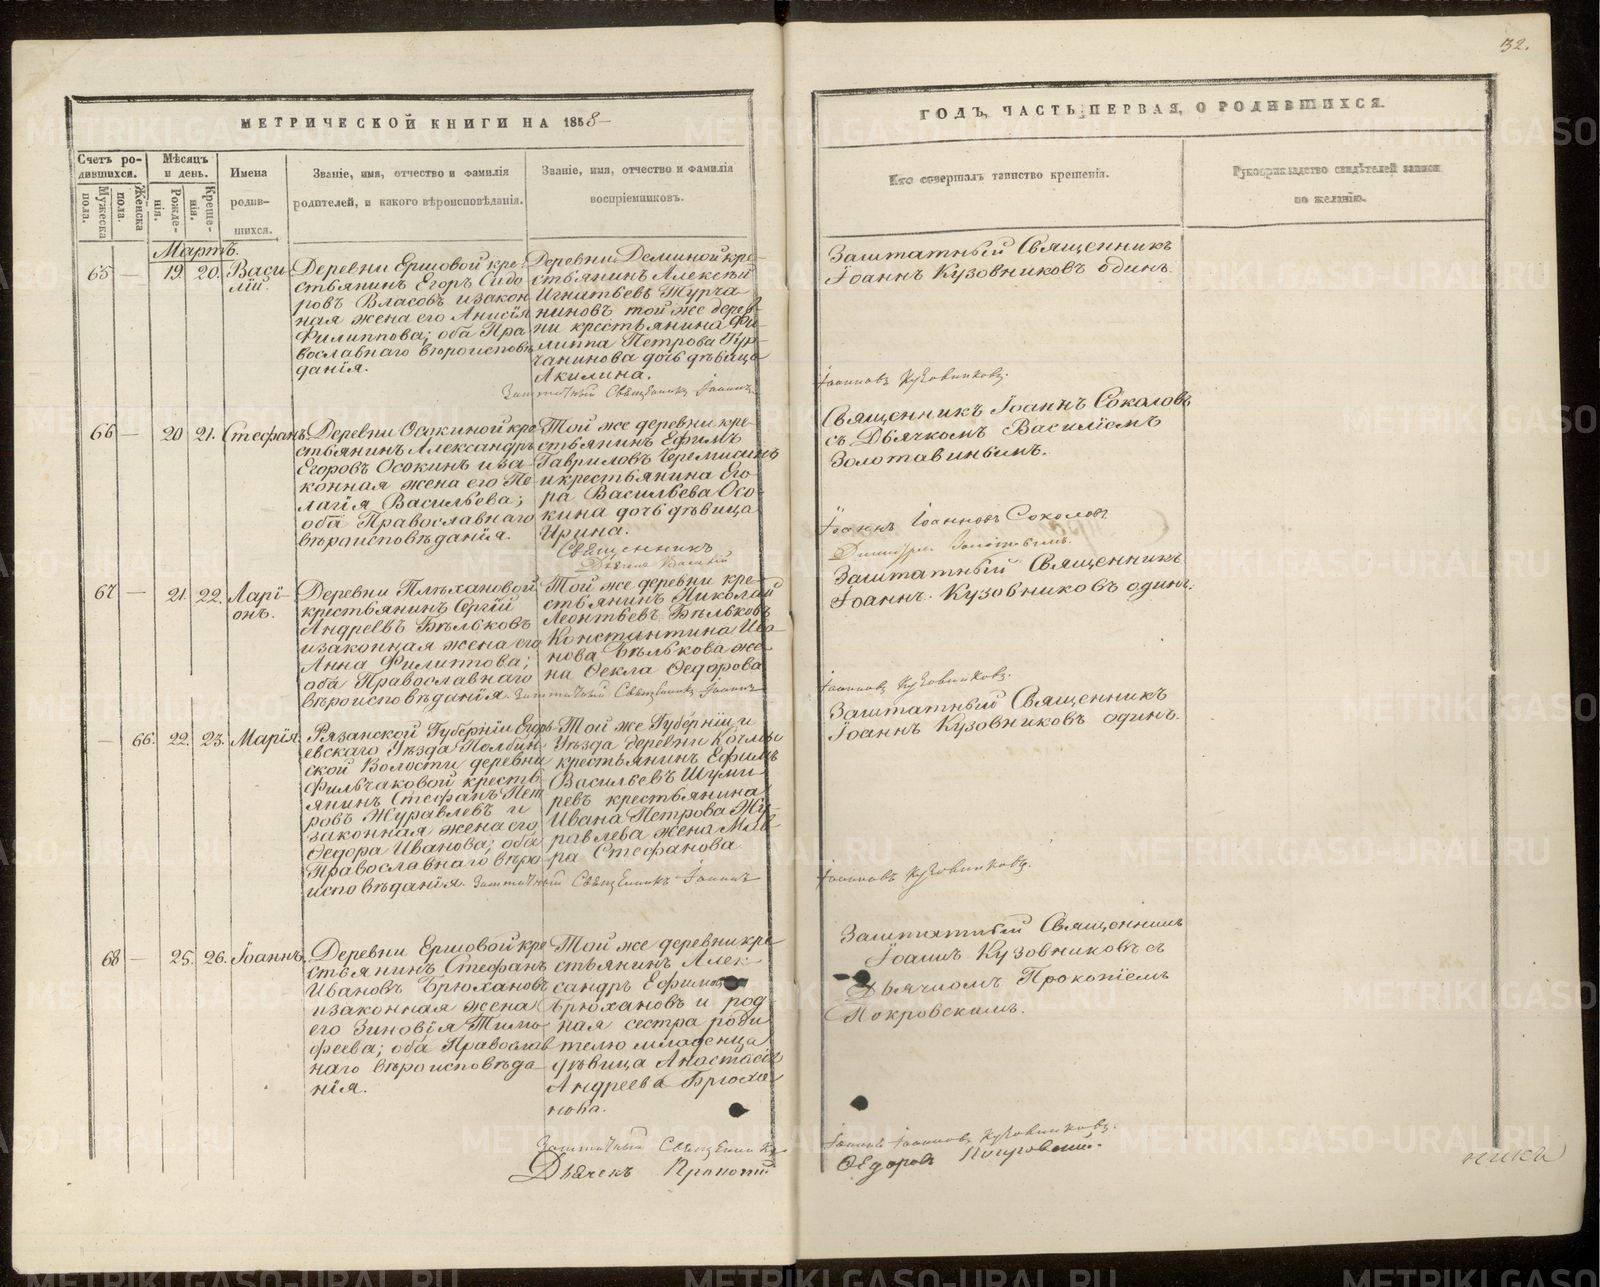 32.
МЕТРИЧЕСКОЙ КНИГИ НА 1858
ГОДЪ, ЧАСТЬ ПЕРВАЯ, О РОДИВШИХСЯ.
Счетъ ро-
дившихся.
Мужеска
пола.
Женска
пола.
Мѣсяцъ
и день.
Рожде-
нія.
Креще-
нія.
Имена
родив-
шихся.
Званіе, имя, отчество и фамилія
родителей, и какого вѣроисповѣданія.
Званіе, имя, отчество и фамилія
воспріемниковъ.
Кто совершалъ таинство крещенія.
Рукоприкладство свидѣтелей записи
по желанію.
Мартъ.
65 — 19. 20. Васи-
лій.
Деревни Ершовой кре-
стьянинъ Егоръ Сидо
ровъ Власовъ и закон
ная жена его Анисія
Филиппова; оба Пра
вославнаго вѣроисповѣ
данія.
Деревни Деминой кре-
стьянинъ Алексѣй
Игнатьевъ Турча
ниновъ той же дерев
ни крестьянина Фи-
липпа Петрова Тур-
чанинова дочь дѣвица
Акилина.
Заштатный Священникъ
Іоаннъ Кузовниковъ одинъ.
Заштатный Священникъ Іоаннъ
Іоанновъ Кузовниковъ.
66 — 20 21. Стефанъ.
Деревни Осокиной кре
стьянинъ Александръ
Егоровъ Осокинъ и за-
конная жена его Пе-
лагія Васильева;
оба Православнаго
вѣроисповѣданія.
Той же деревни кре-
стьянинъ Ефимъ
Гавриловъ Черемисинъ
и крестьянина Его-
ра Васильева Осо-
кина дочь дѣвица
Ирина.
Священникъ Іоаннъ Соколовъ
съ Дьячкомъ Василіемъ
Золотавинымъ.
Священникъ
Іоаннъ Іоанновъ Соколовъ
Дьячекъ Василій
67 — 21. 22. Ларі-
онъ.
Деревни Плѣхановой
крестьянинъ Сергій
Андреевъ Бѣльковъ
и законная жена его
Анна Филиппова;
оба Православнаго
вѣроисповѣданія.
Той же деревни кре-
стьянинъ Николай
Леонтьевъ Бѣльковъ
Константина Ива-
нова Бѣлькова же-
на Ѳекла Ѳедорова
Заштатный Священникъ
Іоаннъ Кузовниковъ одинъ.
Заштатный Священникъ Іоаннъ
Іоанновъ Кузовниковъ.
— 66. 22. 23. Марія.
Рязанской Губерніи Егорь-
евскаго Уѣзда Колбин-
ской Волости деревни
Фильчаковой кресть
янинъ Стефанъ Пет
ровъ Журавлевъ и
законная жена его
Ѳедора Иванова; оба
Православнаго вѣро
исповѣданія.
Той же Губерніи и
Уѣзда деревни
крестьянинъ Ефимъ
Васильевъ Шуми
ревъ крестьянина
Ивана Петрова Жу-
равлева жена Мав
ра Стефанова
Заштатный Священникъ
Іоаннъ Кузовниковъ одинъ.
Заштатный Священникъ Іоаннъ
Іоанновъ Кузовниковъ.
68 — 25. 26. Іоаннъ.
Деревни Ершовой кре
стьянинъ Стефанъ
Ивановъ Брюхановъ
и законная жена
его Зиновія Тимо
феева; оба Православ
наго вѣроисповѣда
нія.
Той же деревни кре
стьянинъ Алек-
сандръ Ефимовъ
Брюхановъ и род
ная сестра роди
телю младенца
дѣвица Анастасія
Андреева Брюха
нова.
Заштатный Священникъ
Іоаннъ Кузовниковъ съ
Дьячкомъ Прокопіемъ
Покровскимъ.
Заштатный Священникъ
Іоаннъ Іоанновъ Кузовниковъ.
Дьячекъ Прокопій
Ѳедоровъ Покровскій.
METRIKI.GASO-URAL.RU